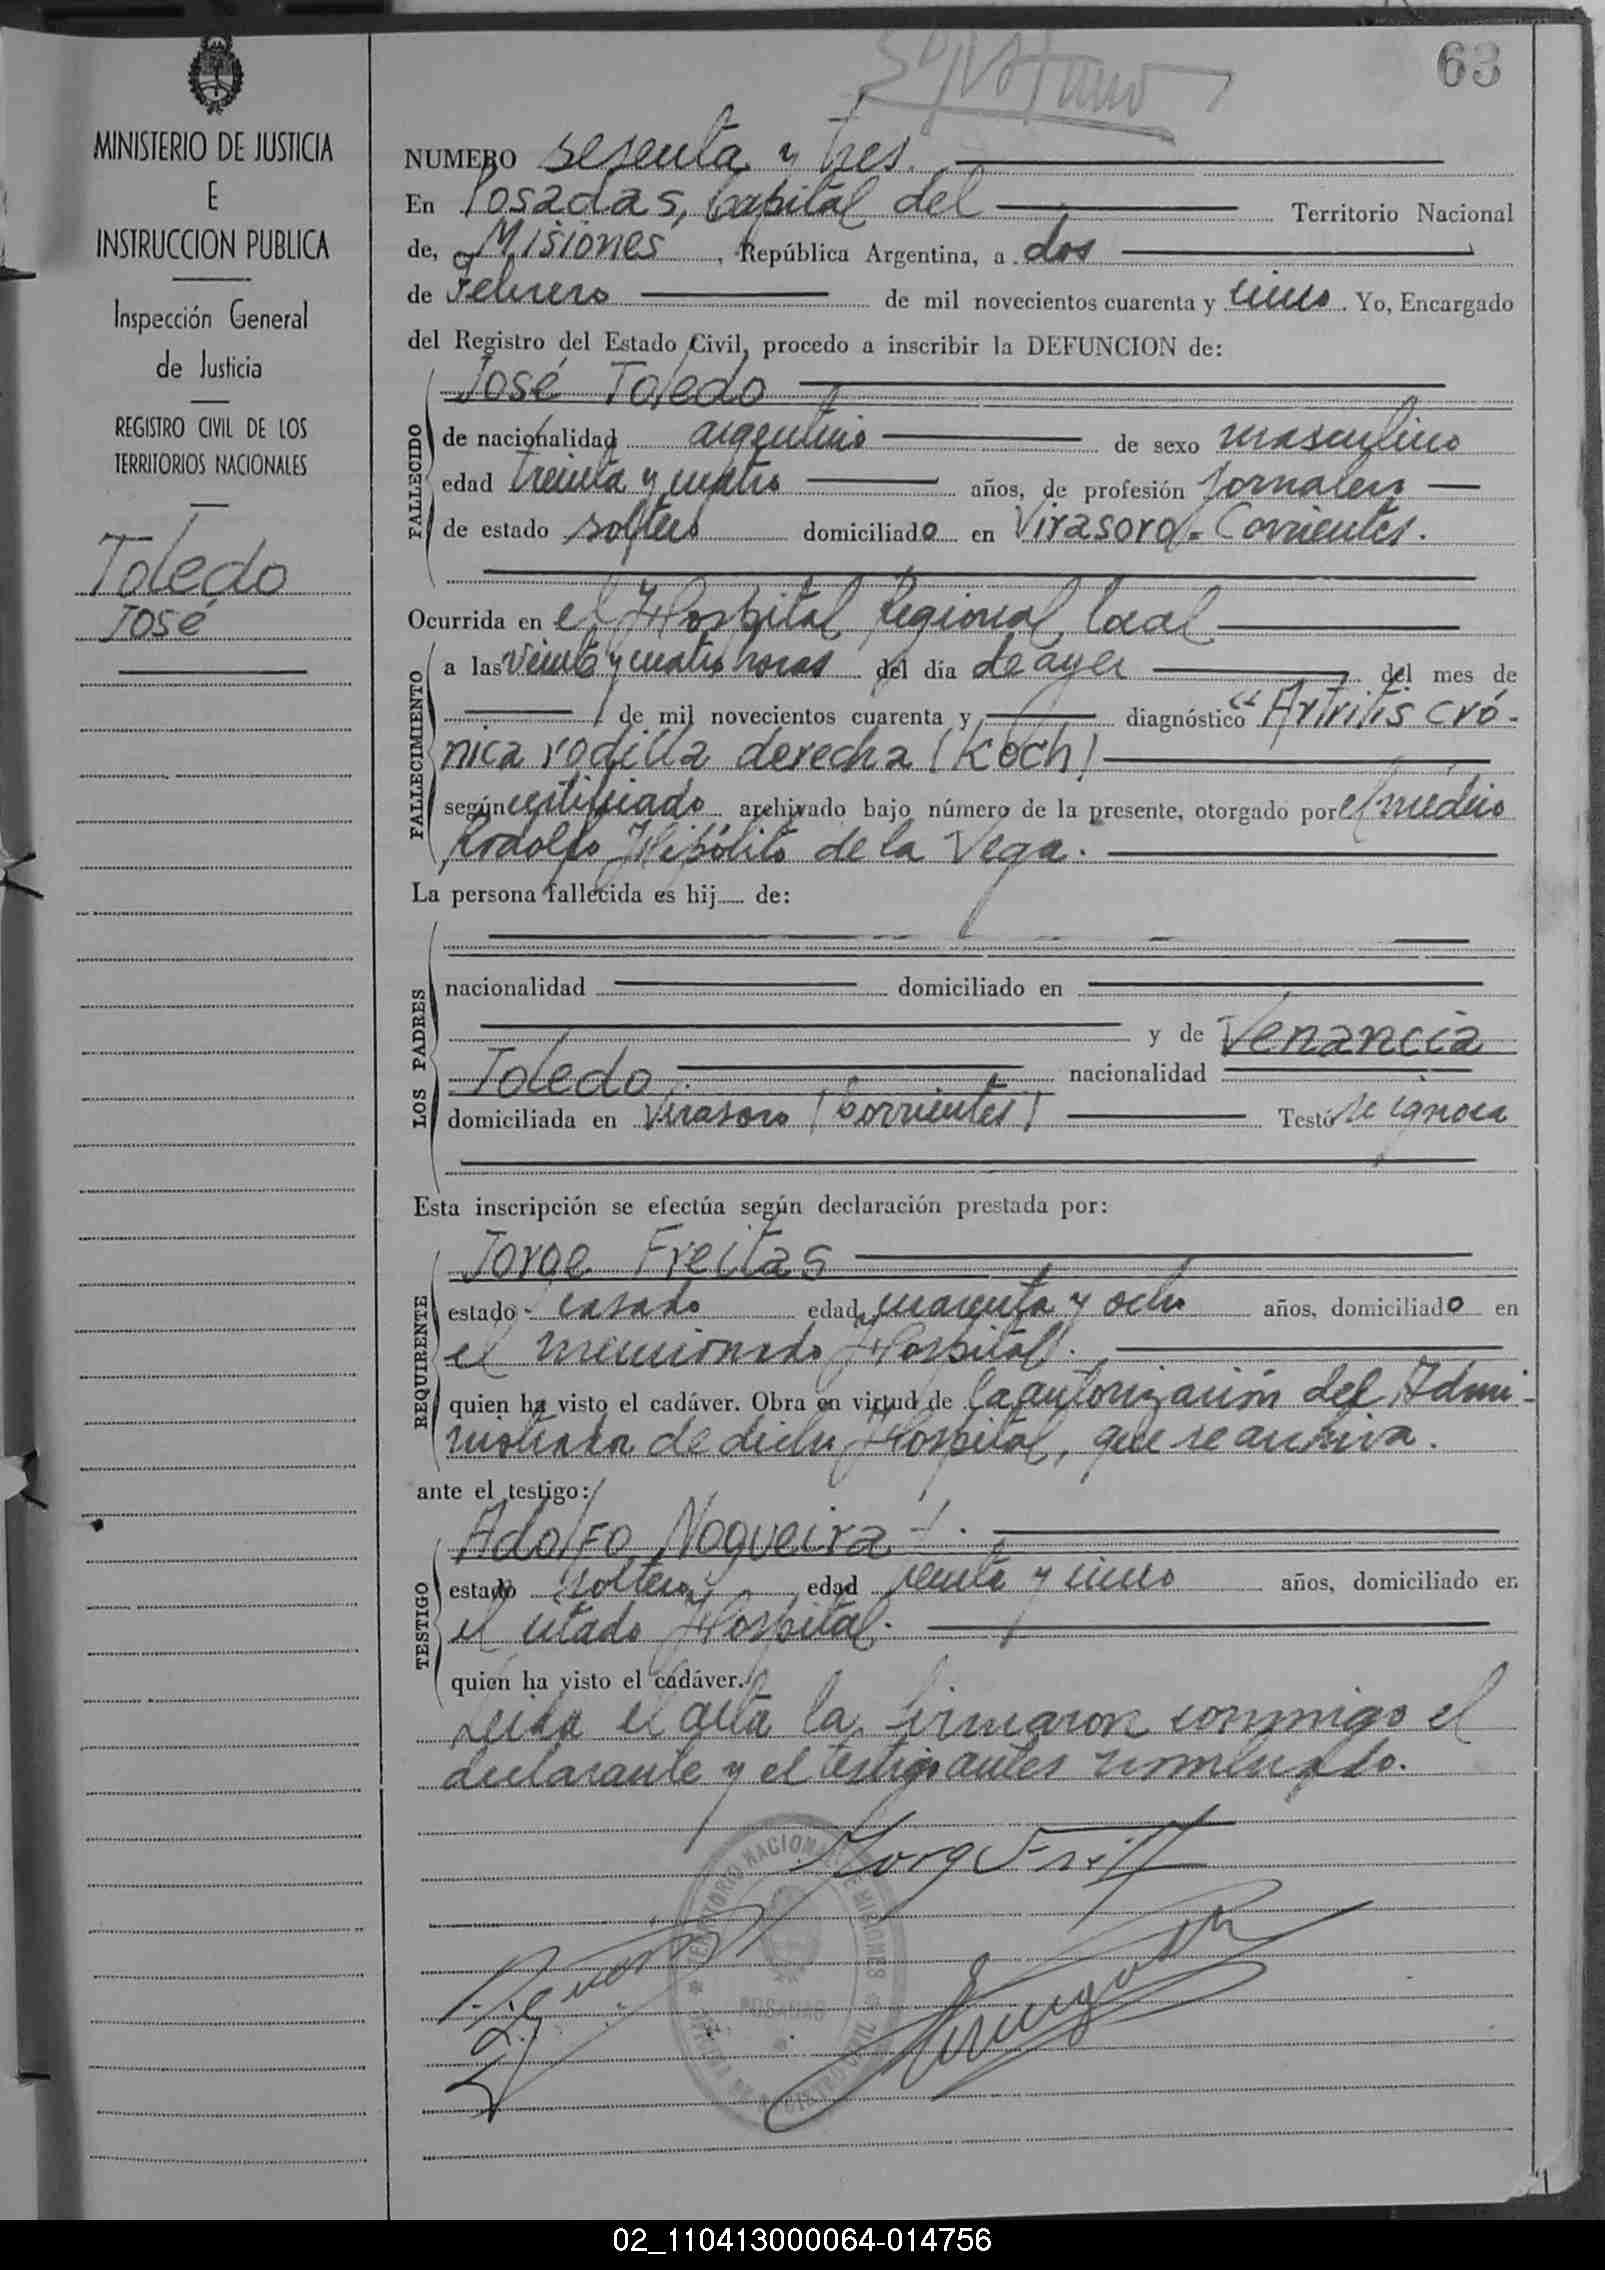 63
MINISTERIO DE JUSTICIA
E
INSTRUCCION PUBLICA
Inspección General
de Justicia
REGISTRO CIVIL DE LOS
TERRITORIOS NACIONALES
Toledo
José
NUMERO sesenta y tres.
En Posadas, Capital del Territorio Nacional
de, Misiones, República Argentina, a dos
de Febrero de mil novecientos cuarenta y cinco. Yo, Encargado
del Registro del Estado Civil, procedo a inscribir la DEFUNCION de:
FALLECIDO
José Toledo
de nacionalidad argentino de sexo masculino
edad treinta y cuatro años, de profesión jornalero
de estado soltero domiciliado en Virasoro - Corrientes.
Ocurrida en el Hospital Regional local
FALLECIMIENTO
a las veinte y cuatro horas del día de ayer del mes de
de mil novecientos cuarenta y diagnóstico "Artritis cró-
nica rodilla derecha (Koch)
según certificado archivado bajo número de la presente, otorgado por el médico
Rodolfo Hipólito de la Vega.
La persona fallecida es hij de:
LOS PADRES
nacionalidad domiciliado en
y de Venancia
Toledo nacionalidad
domiciliada en Virasoro (Corrientes) Testó se ignora
Esta inscripción se efectúa según declaración prestada por:
REQUIRENTE
Jorge Freitas
estado casado edad cuarenta y ocho años, domiciliado en
el mencionado Hospital.
quien ha visto el cadáver. Obra en virtud de la autorización del Admi-
nistrador de dicho Hospital, que se archiva.
ante el testigo:
TESTIGO
Adolfo Nogueira
estado soltero edad y cinco años, domiciliado en
el citado Hospital.
quien ha visto el cadáver.
Leida el acta la firmaron conmigo el
declarante y el testigo antes nombrado.
TERRITORIO NACIONAL DE MISIONES
POSADAS
02_110413000064-014756